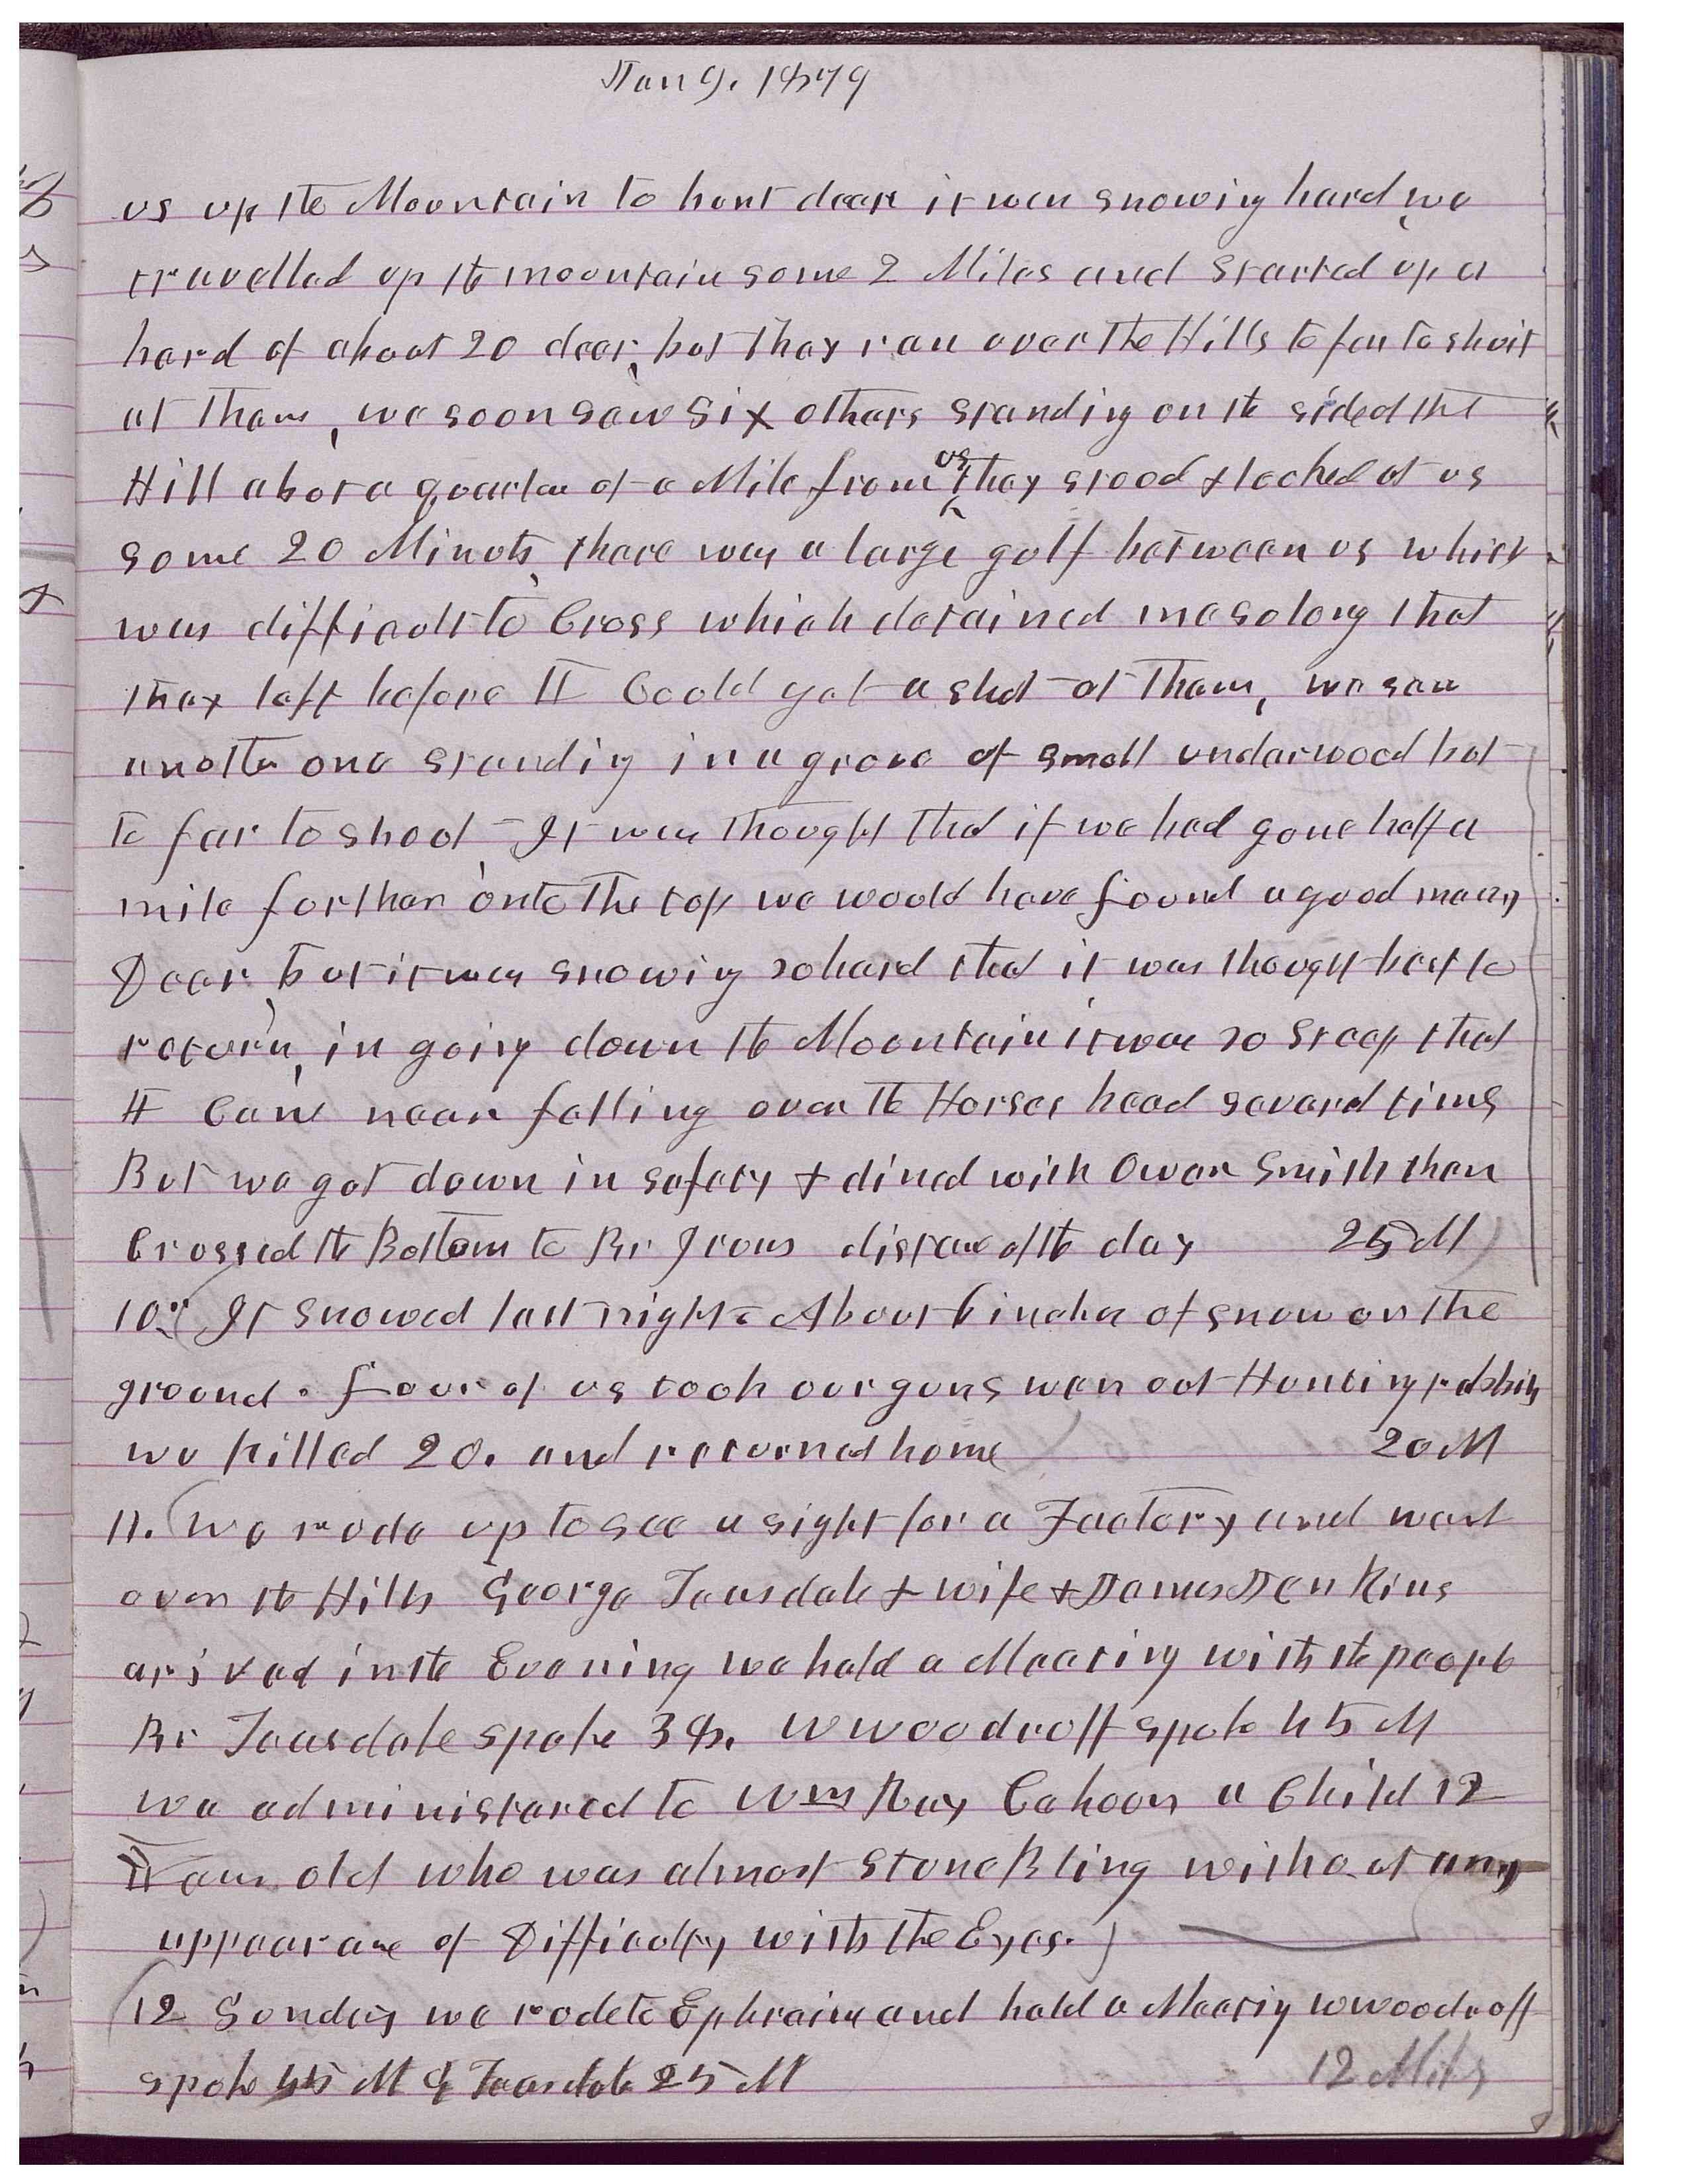 Jan 9. 1879
us up the Mountain to hunt deer it was snowing hard, we
travelled up the mountain some 2 Miles and started up a
herd of about 20 deer, but they ran over the Hills to far to shoot
at them, we soon saw six others standing on the side of the
Hill about a quarter of a Mile from us, they stood & looked at us
some 20 Minuts, there was a large gulf between us which
was difficult to Cross which detained me so long that
they left before I Could get a shot at them, we saw
another one standing in a grove of small underwood but
to far to shoot, It was thought that if we had gone half a
mile further onto the top we would have found a good many
Deer, but it was snowing so hard that it was thought best to
return, in going down the Mountain it was so steep that
I Came near falling over the Horses head several times
But we got down in safety & dined with Owen Smith then
Crossed the Bottom to Br Irons distance of the day 25 M
10. It snowed last night. About 6 inches of snow on the
ground. Four of us took our guns wen out Hunting rabbits
we killed 20. and returned home 20 M
11. We rode up to see a sight for a Factory and went
over the Hills George Teasdale & wife & James Jenkins
arived in the Evening we held a Meeting with the people
Br Teasdale spoke 38. W Woodruff spoke 45 M
we administered to Wm Ray Cahoon a Child 12
Years old who was almost Stone Bling without any
appearance of Difficulty with the Eyes.
12 Sunday we rode to Ephraim and held a Meeting W Woodruff
spoke 45 M G Teasdale 25 M 12 Miles